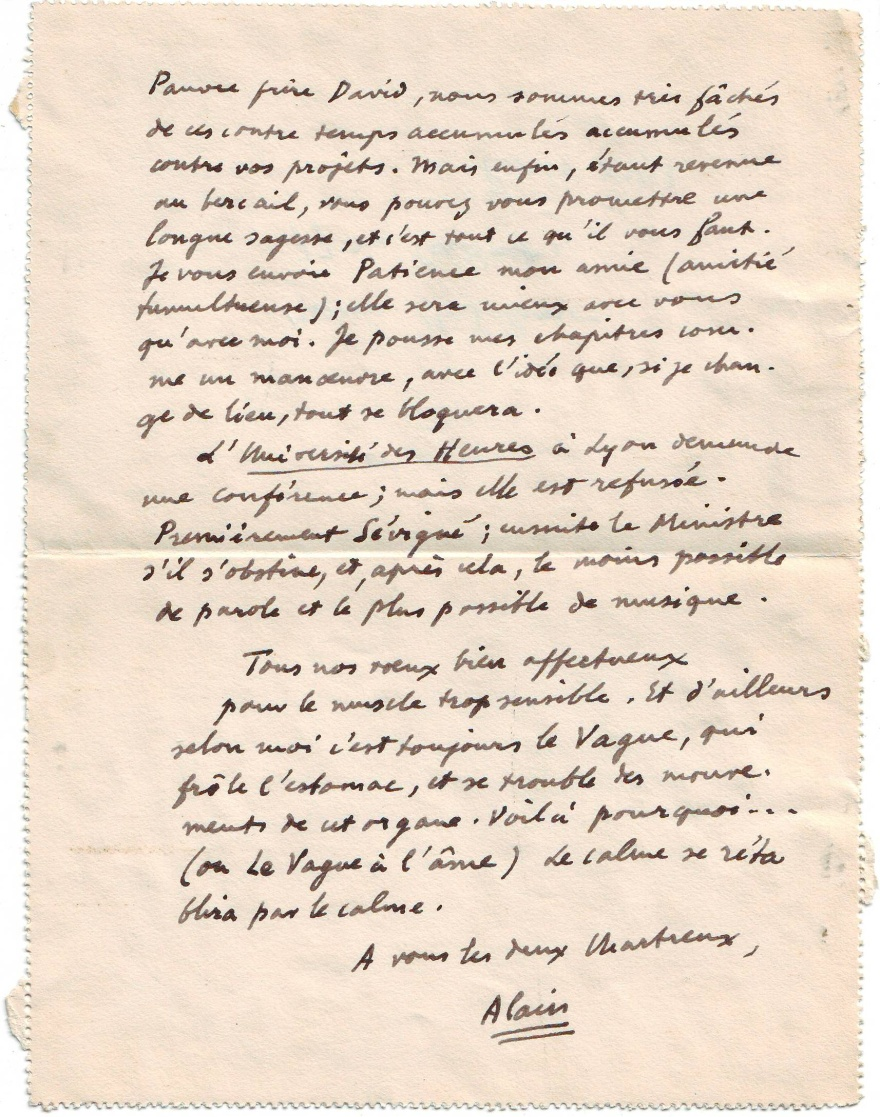 Pauvre frère David, nous sommes très fâchés
de ces contre temps accumulés accumulés
contre vos projets. Mais enfin, étant revenue
au bercail, vous pouvez vous promettre une
longue sagesse, et c'est tout ce qu'il vous faut.
Je vous envoie Patience mon amie (amitié
tumultueuse); elle sera mieux avec vous
qu'avec moi. Je pousse mes chapitres com-
me un manœuvre, avec l'idée que, si je chan-
ge de lieu, tout se bloquera.
L'Université des Heures à Lyon demande
une conférence; mais elle est refusée.
Premièrement Sévigné; ensuite le Ministre
s'il s'obstine, et, après cela, le moins possible
de parole et le plus possible de musique.
Tous nos vœux bien affectueux
pour le muscle trop sensible. Et d'ailleurs
selon moi c'est toujours le Vague, qui
frôle l'estomac, et se trouble des mouve-
ments de cet organe. Voilà pourquoi...
(ou Le Vague à l'âme) Le calme se réta
blira par le calme.
A vous les deux Chartreux,
Alain